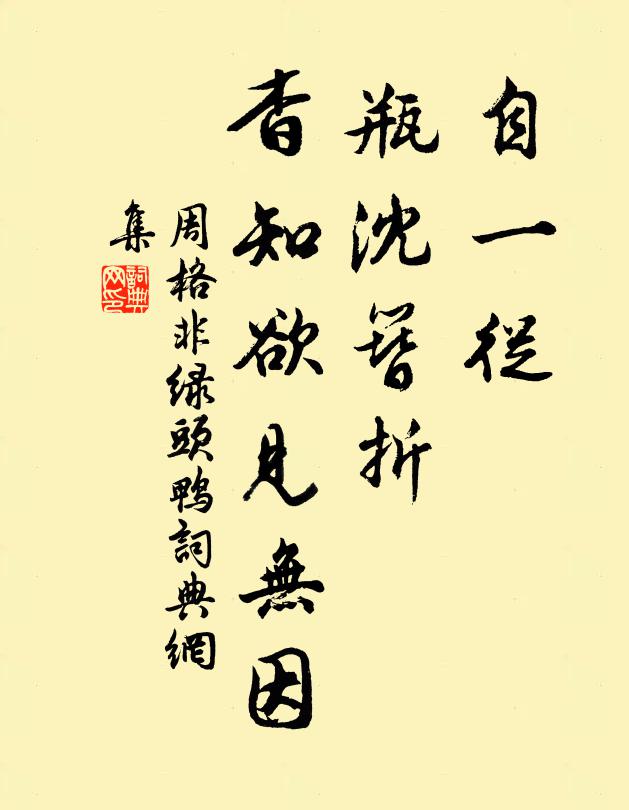 自一從
瓶沈簪折
杳知欲見無因
周格非綠頭鴨詞典網
集
詞典
网印